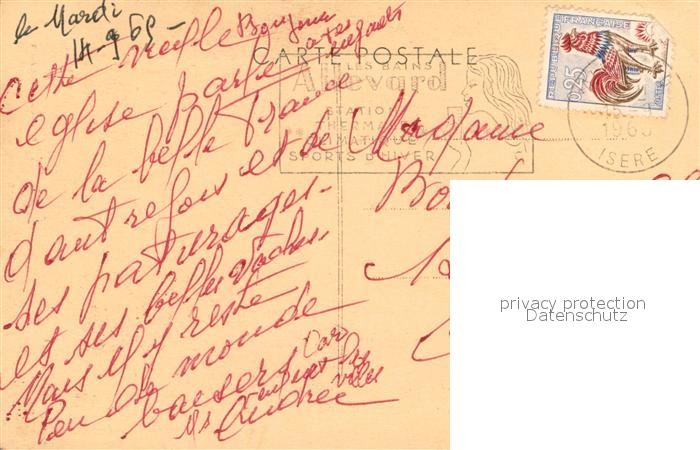 le Mardi
14-9-65-
Bonjour
CARTE POSTALE
Cette vieille
eglise parle
de la belle France
d'autrefois et de
ses paturages-
et ses belles vaches-
Mais il y reste
Peu de monde
Car
baisers
villes
Andrée
Madame
LES BAINS
Allevard
STATION
THERMALE
CLIMATIQUE
SPORTS D'HIVER
REPUBLIQUE FRANÇAISE
0,25
POSTES
ISERE
privacy protection
Datenschutz